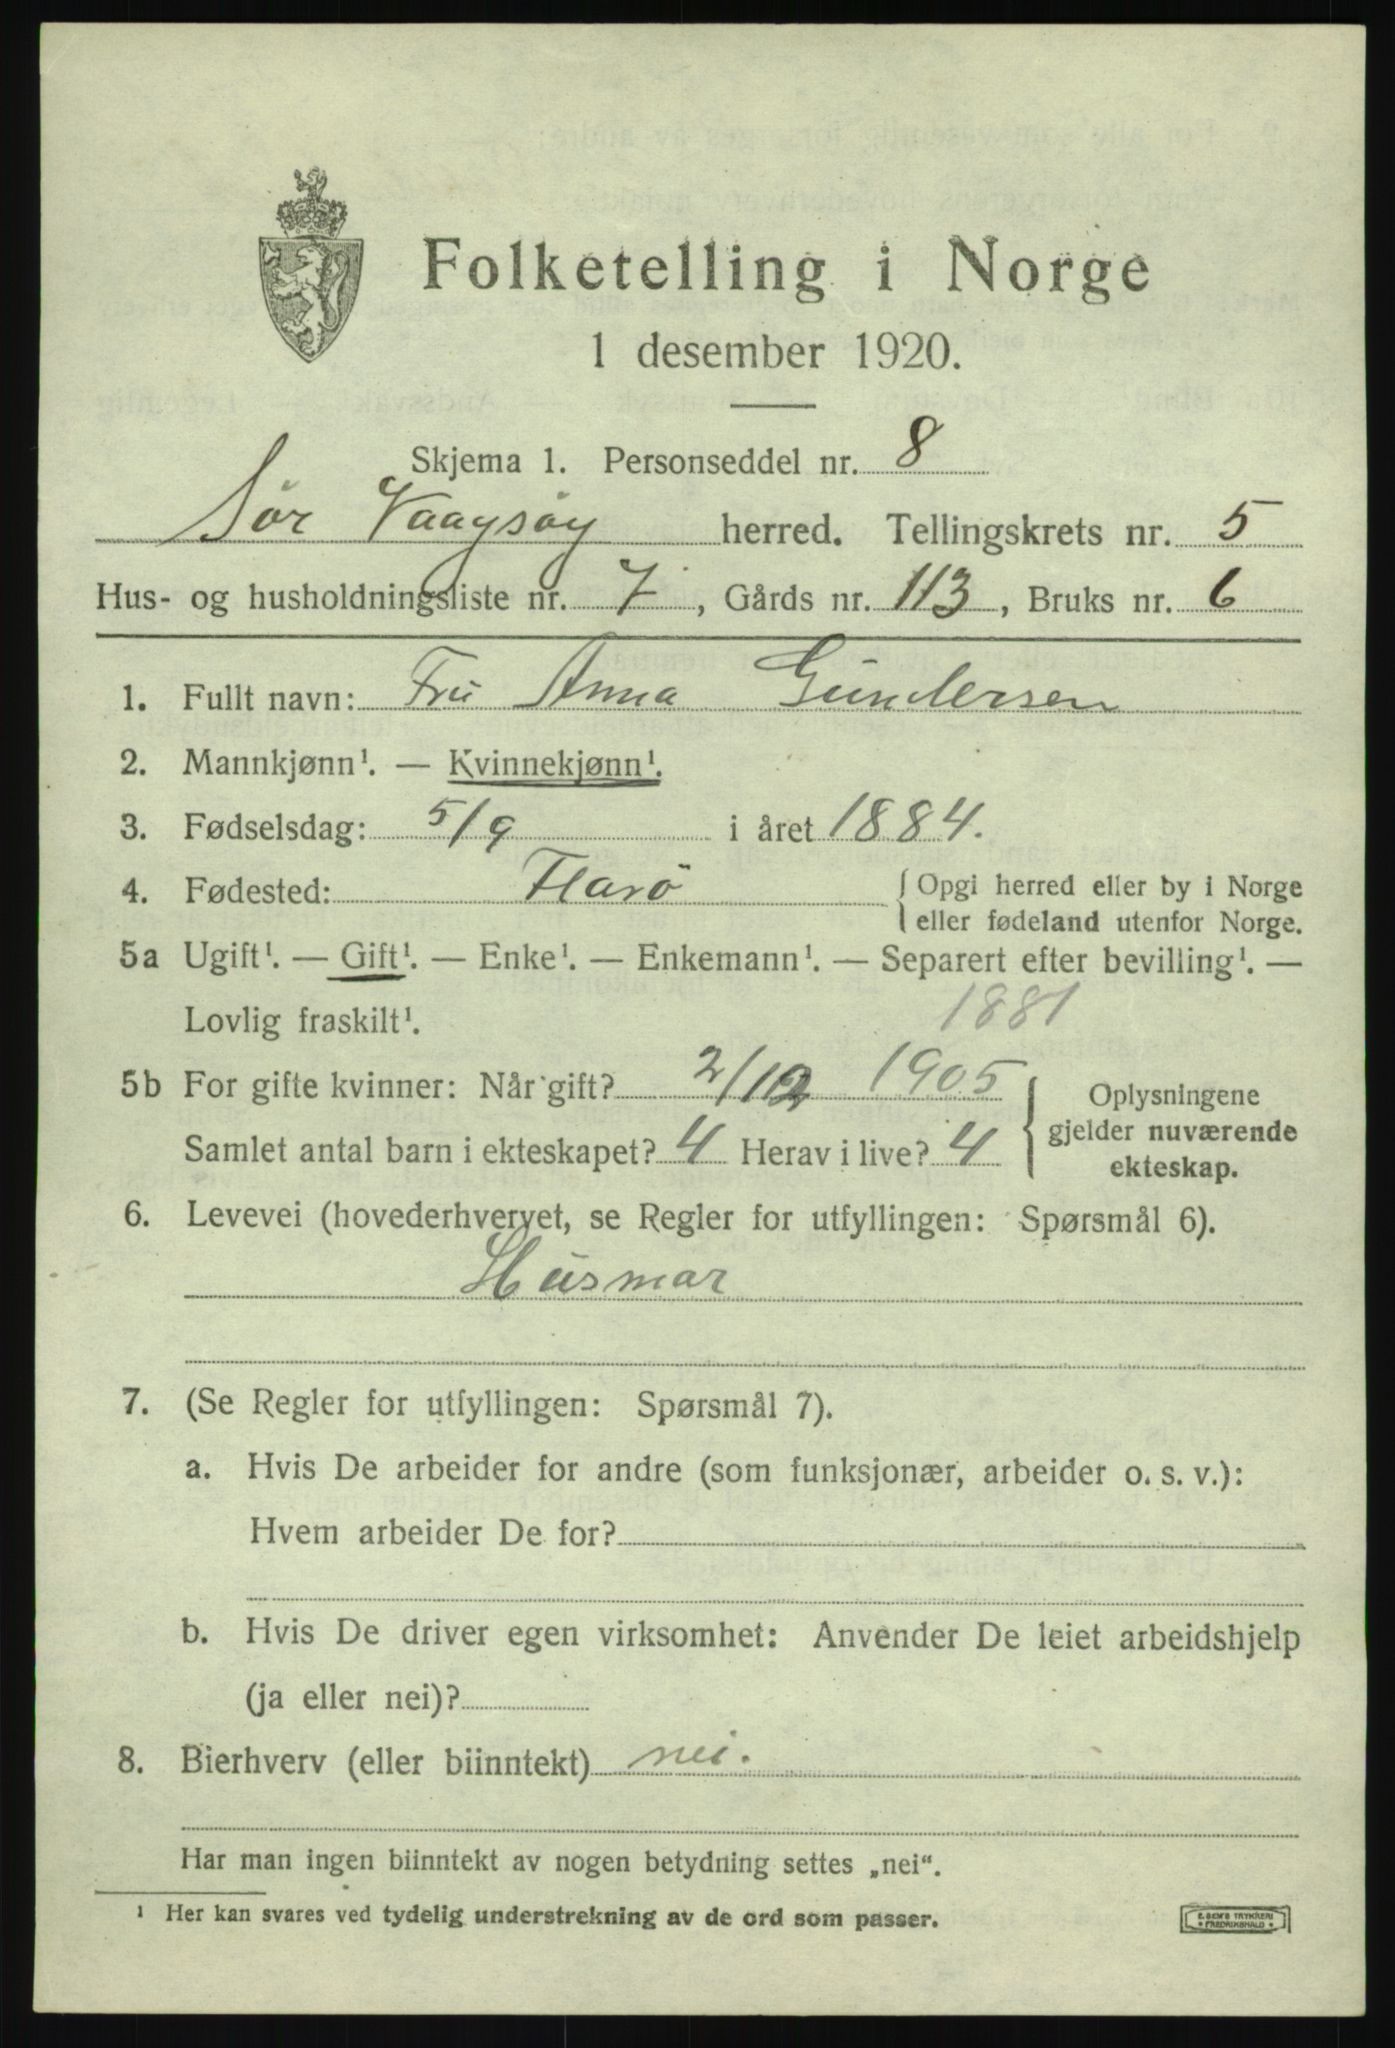 Folketelling i Norge
1 desember 1920.
Skjema 1. Personseddel nr. 8
Sør Vaagsøy herred. Tellingskrets nr. 5
Hus- og husholdningsliste nr. 7, Gårds nr. 113, Bruks nr. 6
1. Fullt navn: Fru Anna Gundersen
2. Mannkjønn¹. — Kvinnekjønn¹.
3. Fødselsdag: 5/9 i året 1884.
4. Fødested: Florö { Opgi herred eller by i Norge
eller fødeland utenfor Norge.
5a Ugift¹. — Gift¹. — Enke¹. — Enkemann¹. — Separert efter bevilling¹. —
Lovlig fraskilt¹. 1881
5b For gifte kvinner: Når gift? 2/12 1905 } Oplysningene
gjelder nuværende
Samlet antal barn i ekteskapet? 4 Herav i live? 4
ekteskap.
6. Levevei (hovederhvervet, se Regler for utfyllingen: Spørsmål 6).
Husmor
7. (Se Regler for utfyllingen: Spørsmål 7).
a. Hvis De arbeider for andre (som funksjonær, arbeider o. s. v.):
Hvem arbeider De for?
b. Hvis De driver egen virksomhet: Anvender De leiet arbeidshjelp
(ja eller nei)?
8. Bierhverv (eller biinntekt) nei.
Har man ingen biinntekt av nogen betydning settes „nei“.
¹ Her kan svares ved tydelig understrekning av de ord som passer.
E. SEM'S TRYKKERI
FREDRIKSHALD